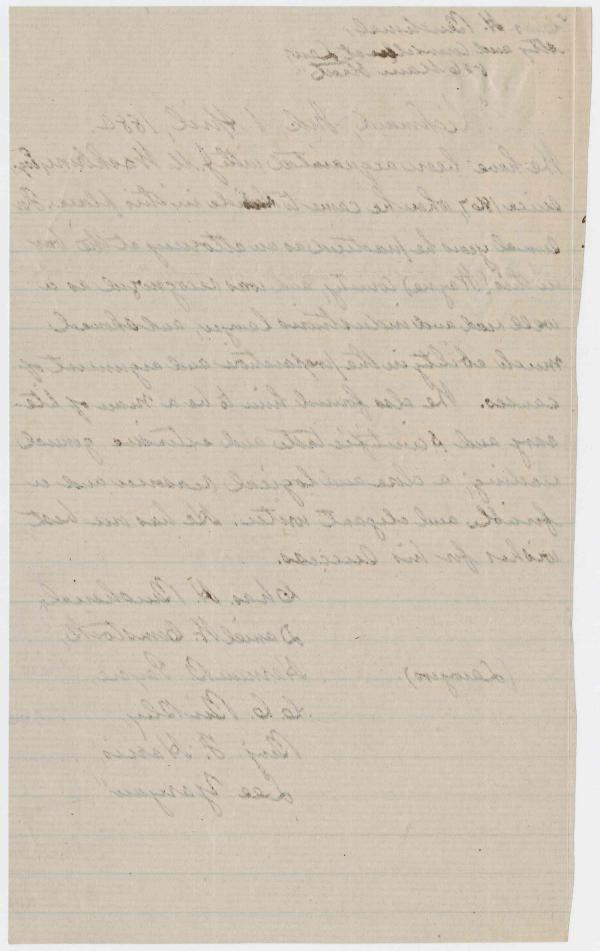 H. Burchenal,
Atty and Counsellor at Law,
Main Street
Richmond, Ind. 1 April 1882.
We have been acquainted with J. M. Washburn, Esq.
since 1867 when he came to reside in this place. For
several years he practiced as an attorney at the bar
in this (Wayne) County and was recognized as a
well read and industrious lawyer, and showed
much ability in the preparation and argument of
causes. We also found him to be a man of lite-
rary and scientific taste and extensive general
reading; a close and logical reasoner and a
forcible and elegant writer. He has our best
wishes for his success.
Chas. H. Burchenal,
Daniel W. Comstock,
(Lawyers) B.
C. C. Binkley,
Benj. F. Harris
Lee Yaryan "